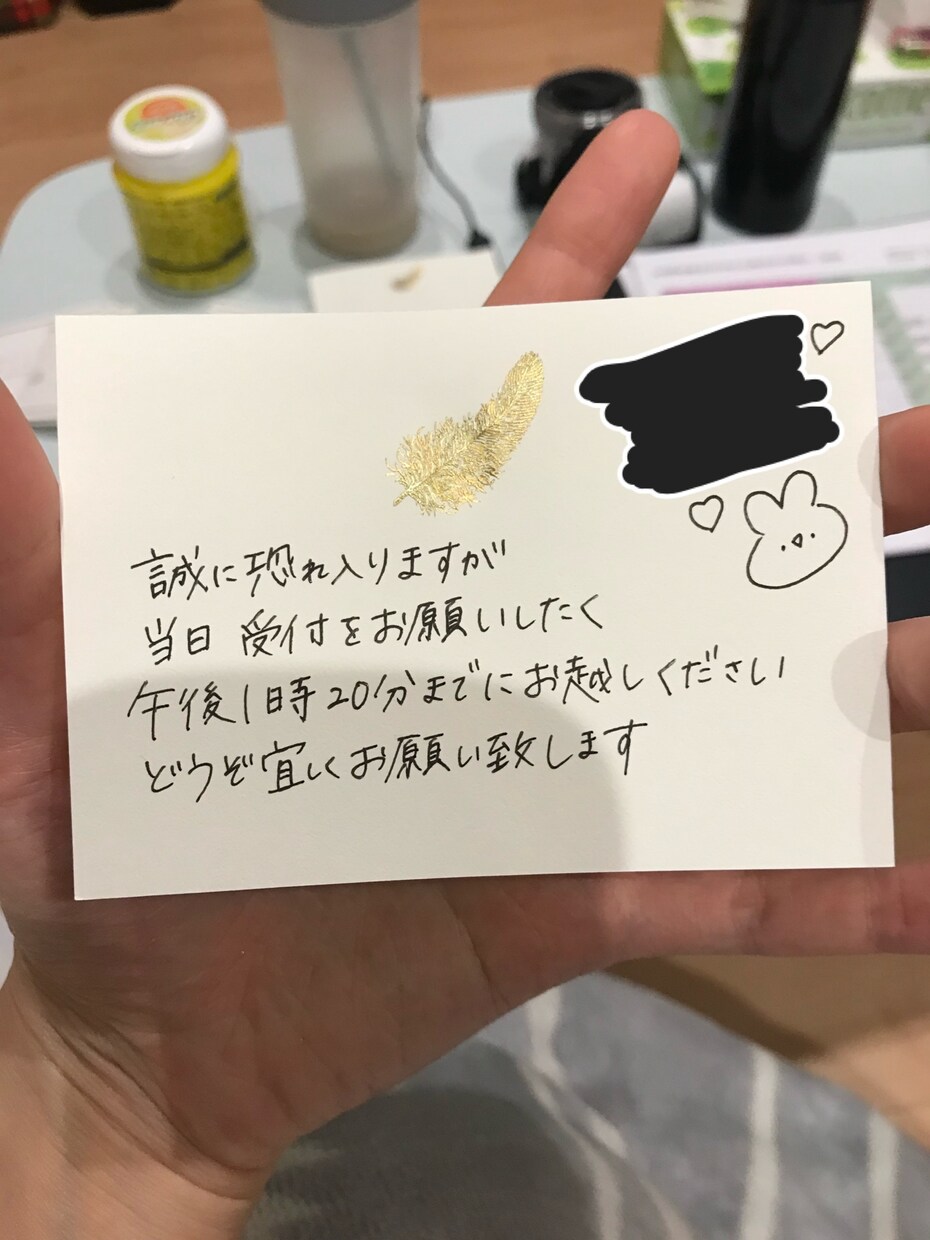 誠に恐れ入りますが
当日 受付をお願いしたく
午後1時20分までにお越しください
どうぞ宜しくお願い致します